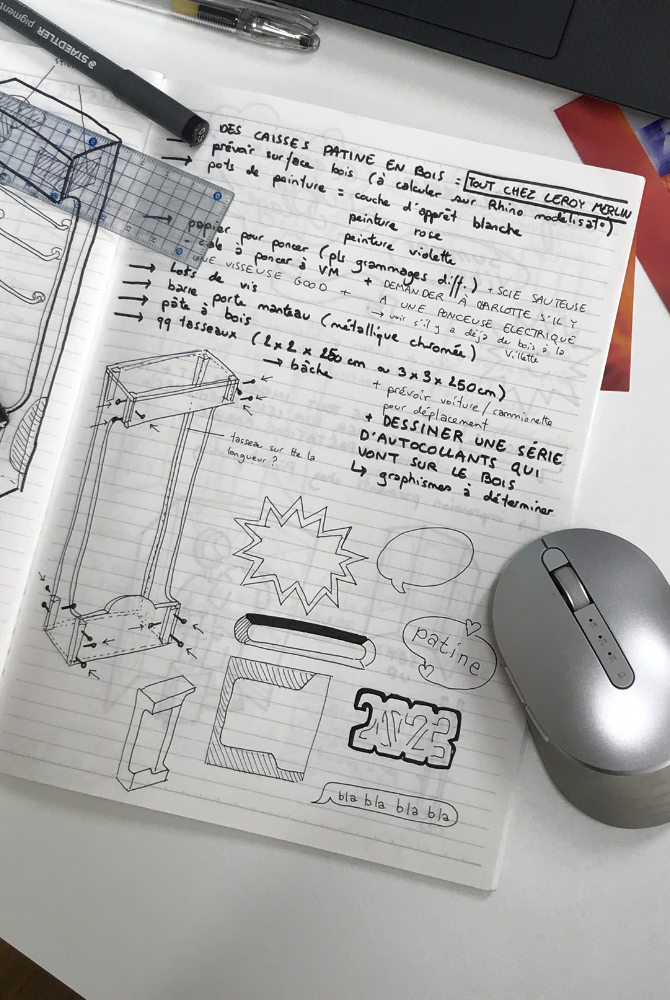 STAEDTLER pigment
DES CAISSES PATINE EN BOIS : TOUT CHEZ LEROY MERLIN
→ prévoir surface bois (à calculer sur Rhino modélisato)
→ pots de peinture = couche d'apprêt blanche
peinture rose
peinture violette
→ papier pour poncer (pls grammages diff.) + SCIE SAUTEUSE
- cale à poncer à VM + DEMANDER À CARLOTTE S'IL Y
QUE VISSEUSE GOOD + A UNE PONCEUSE ELECTRIQUE
→ Lots de vis → voir s'il y a déjà de bois à la
Villette
→ barre porte manteau (métallique chromée)
→ pâte à bois
→ 99 tasseaux (2 x 2 x 250 cm ~ 3 x 3 x 250cm)
→ bâche
+ prévoir voiture/camionnette
pour déplacement
+ DESSINER UNE SÉRIE
D'AUTOCOLLANTS QUI
VONT SUR LE BOIS
↳ graphismes à déterminer
tasseau sur tte la
longueur ?
patine
2023
bla bla bla bla